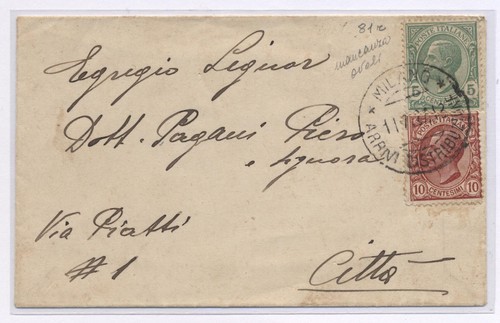 81c
mancanza
ovali
POSTE ITALIANE
5 5
CENTESIMI
MILANO
ARRIVI DISTRIB
POSTE ITALIANE
10 CENTESIMI 10
Egregio Signor
Dott. Pagani Piero
e Signora
Via Piatti
#1
Città